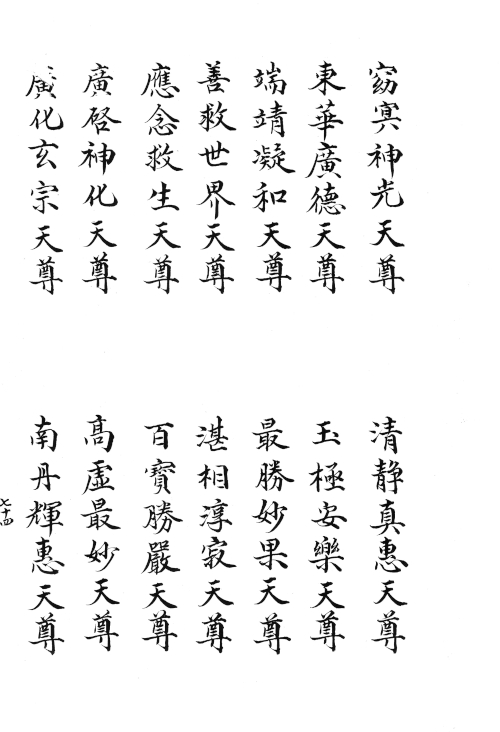 窈冥神光天尊
清靜真惠天尊
東華廣德天尊
玉極安樂天尊
端靖凝和天尊
最勝妙果天尊
善救世界天尊
湛相淳寂天尊
應念救生天尊
百寶勝嚴天尊
廣啓神化天尊
高虛最妙天尊
廣化玄宗天尊
南丹輝惠天尊
七十四